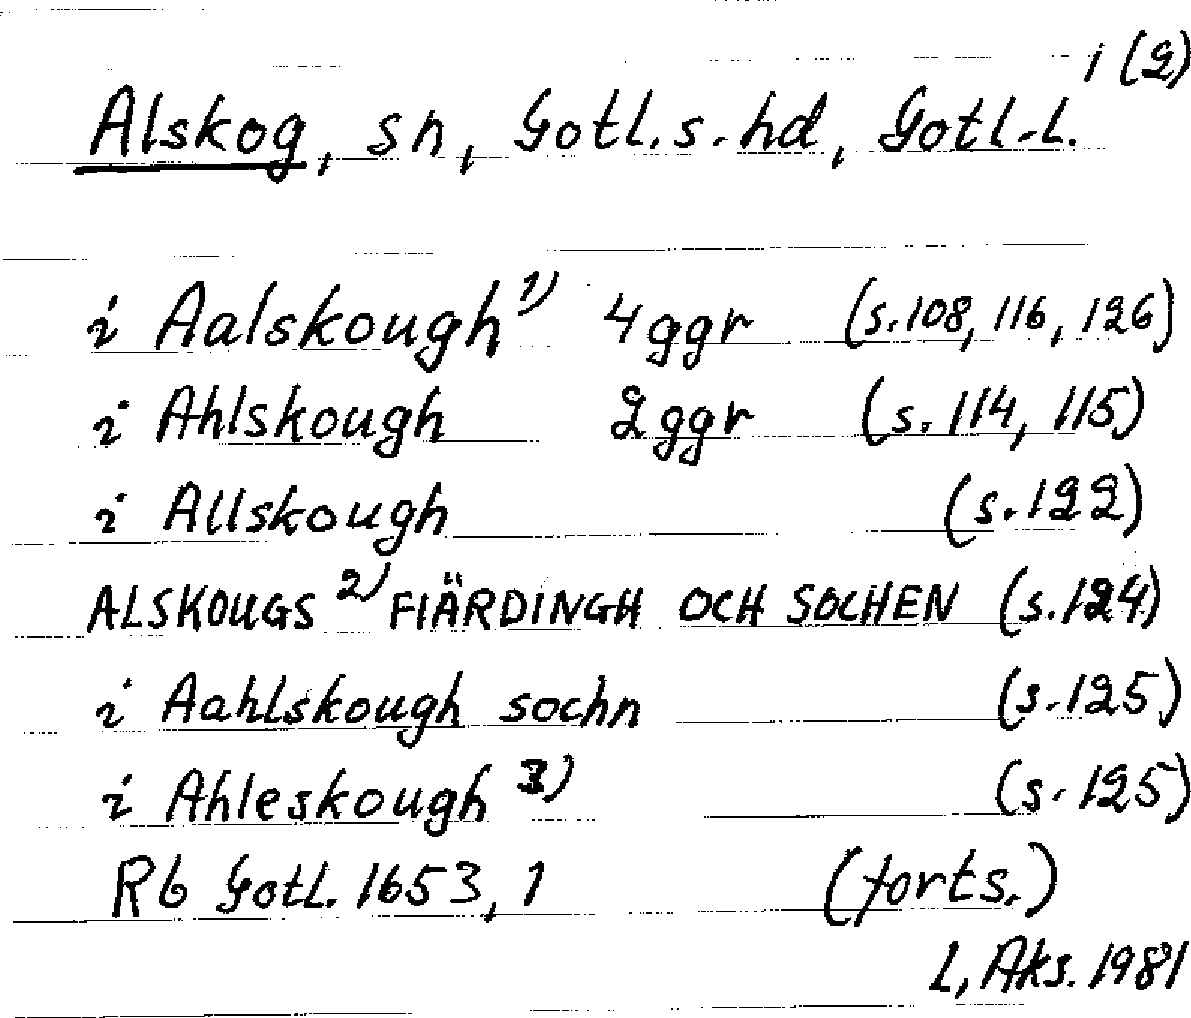 1 (2)
Alskog, sn, Gotl.s.hd, Gotl.L.
i Aalskough 1) 4 ggr (s.108, 116, 126)
i Ahlskough 2 ggr (s.114, 115)
i Allskough (s.122)
ALSKOUGS 2) FIÄRDINGH OCH SOCHEN (s.124)
i Aahlskough sochn (s.125)
i Ahleskough 3) (s.125)
Rb Gotl. 1653, 1 (forts.)
L, Aks. 1981